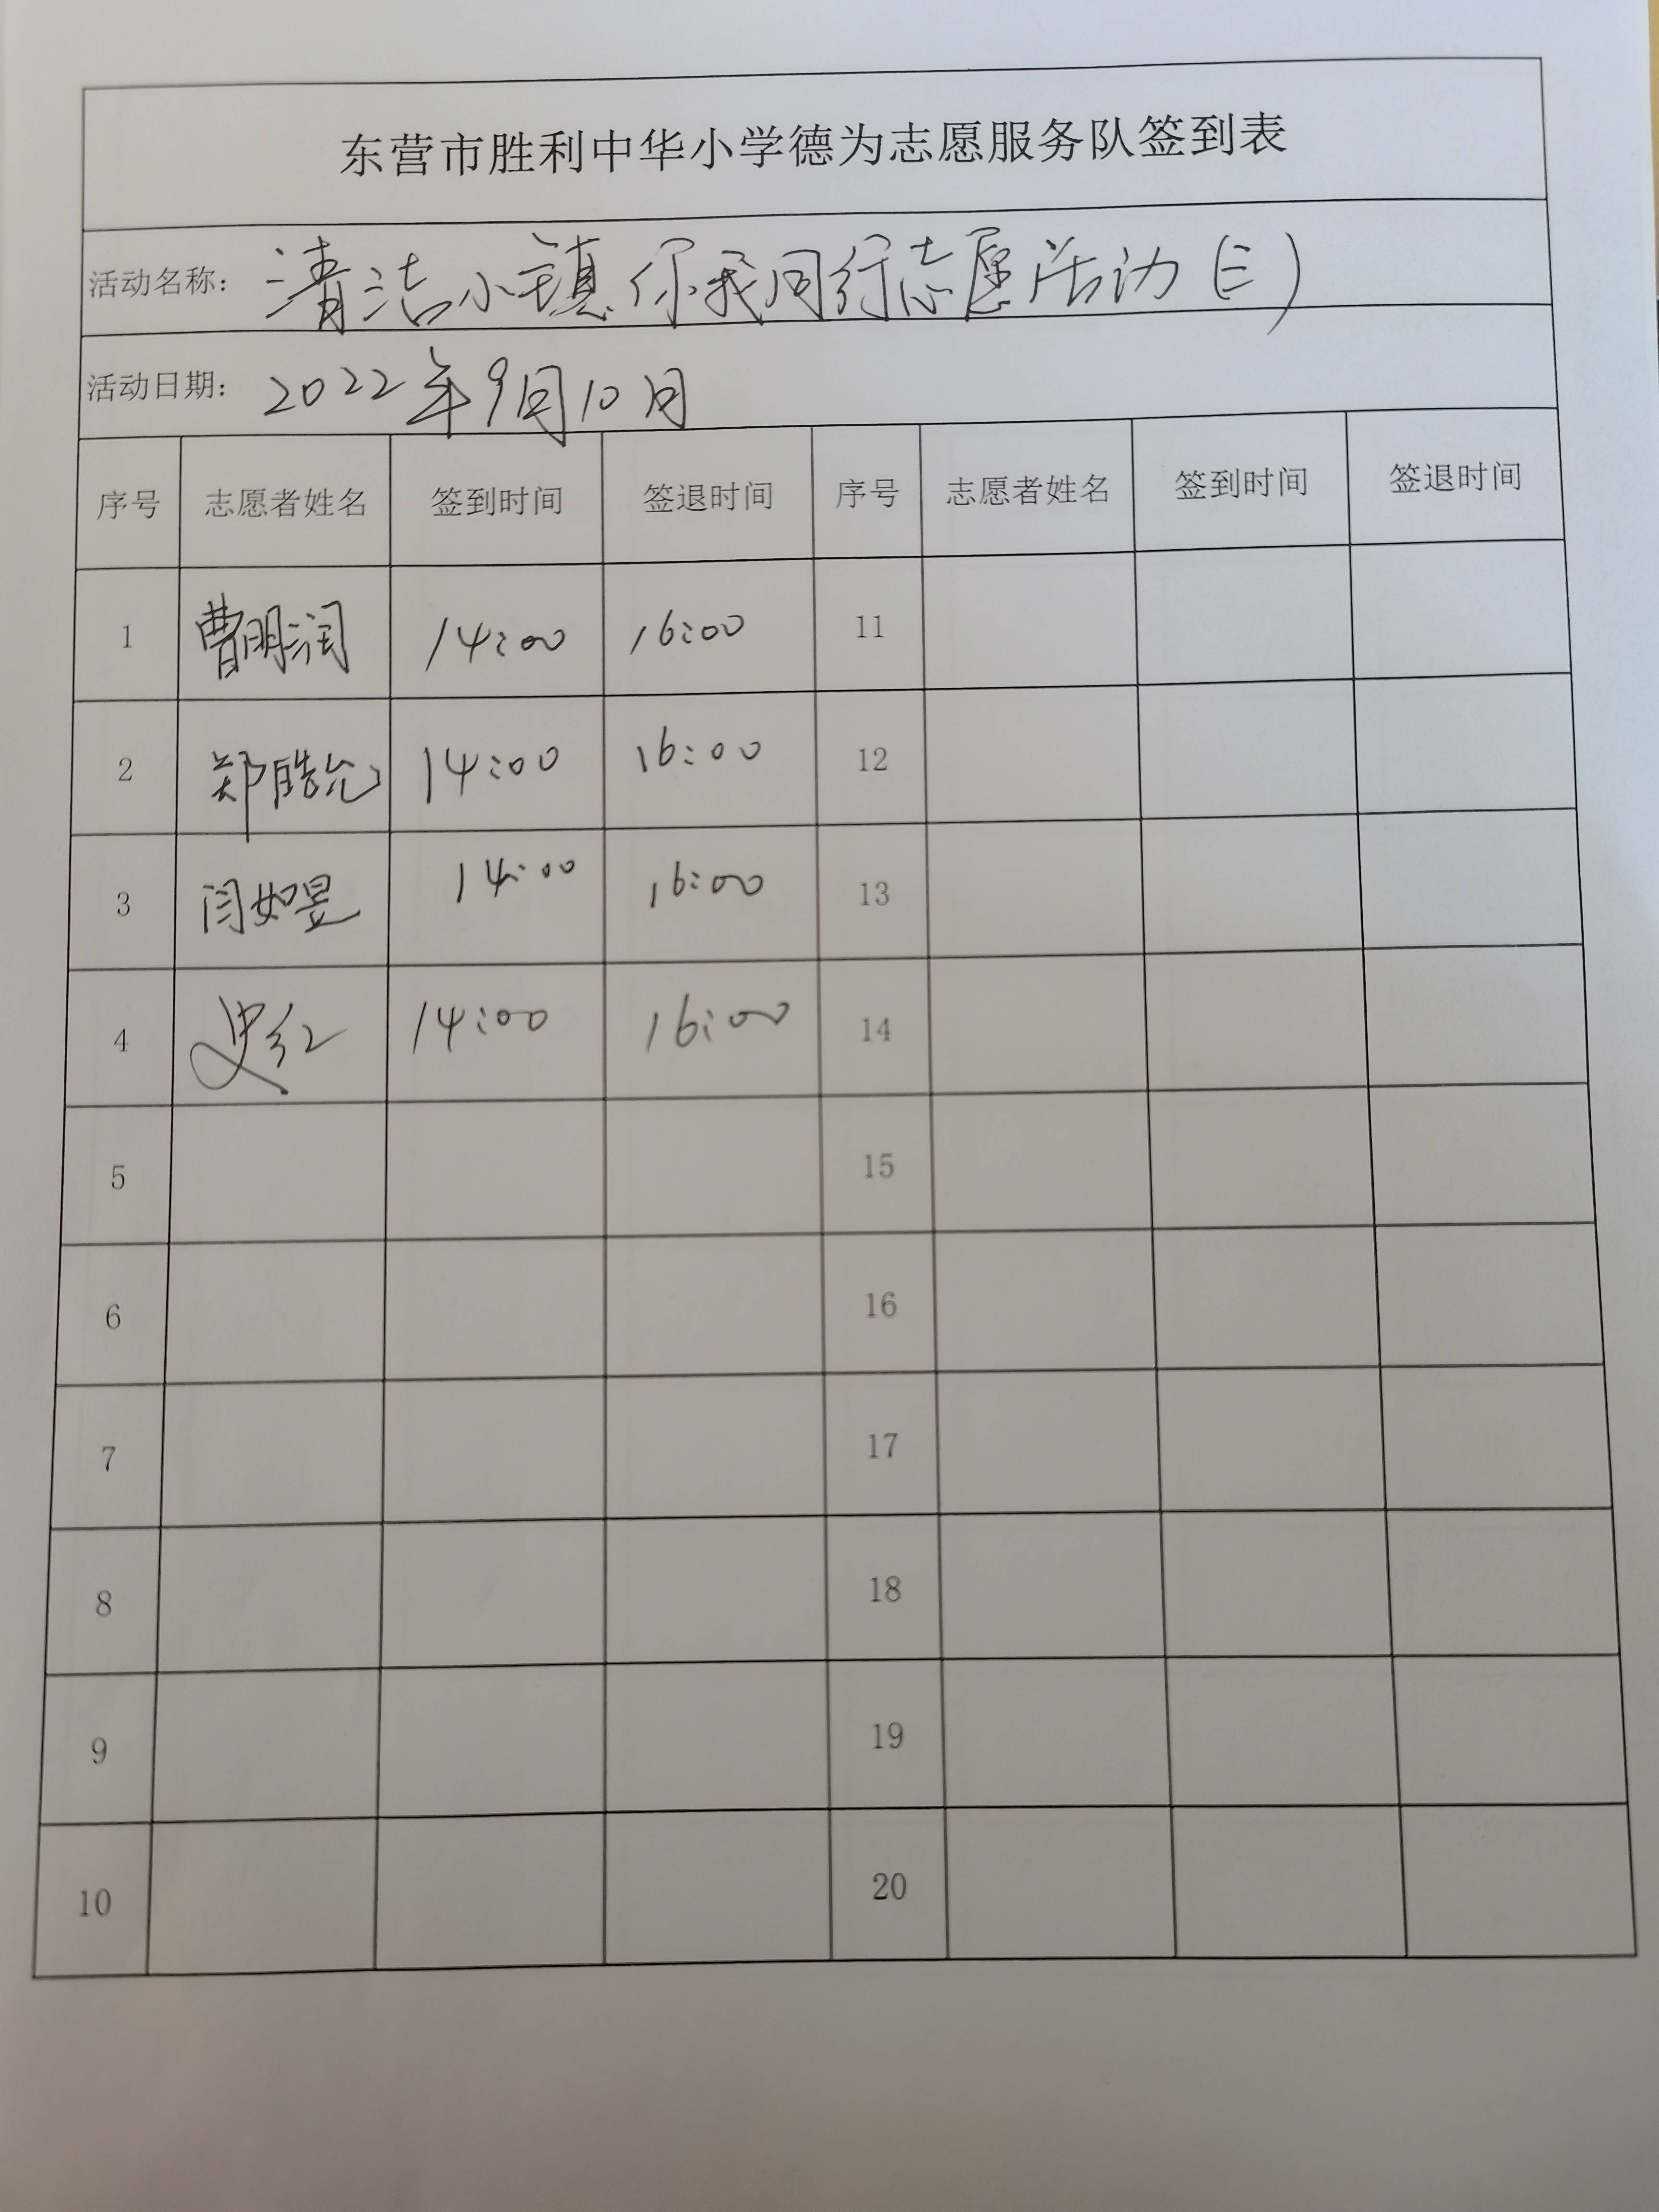 东营市胜利中华小学德为志愿服务队签到表
活动名称：清洁小镇你我同行志愿活动（三）
活动日期：2022年9月10日
序号 志愿者姓名 签到时间 签退时间 序号 志愿者姓名 签到时间 签退时间
1 曹明润 14:00 16:00 11
2 郑皓允 14:00 16:00 12
3 闫如昱 14:00 16:00 13
4 史红 14:00 16:00 14
5 15
6 16
7 17
8 18
9 19
10 20